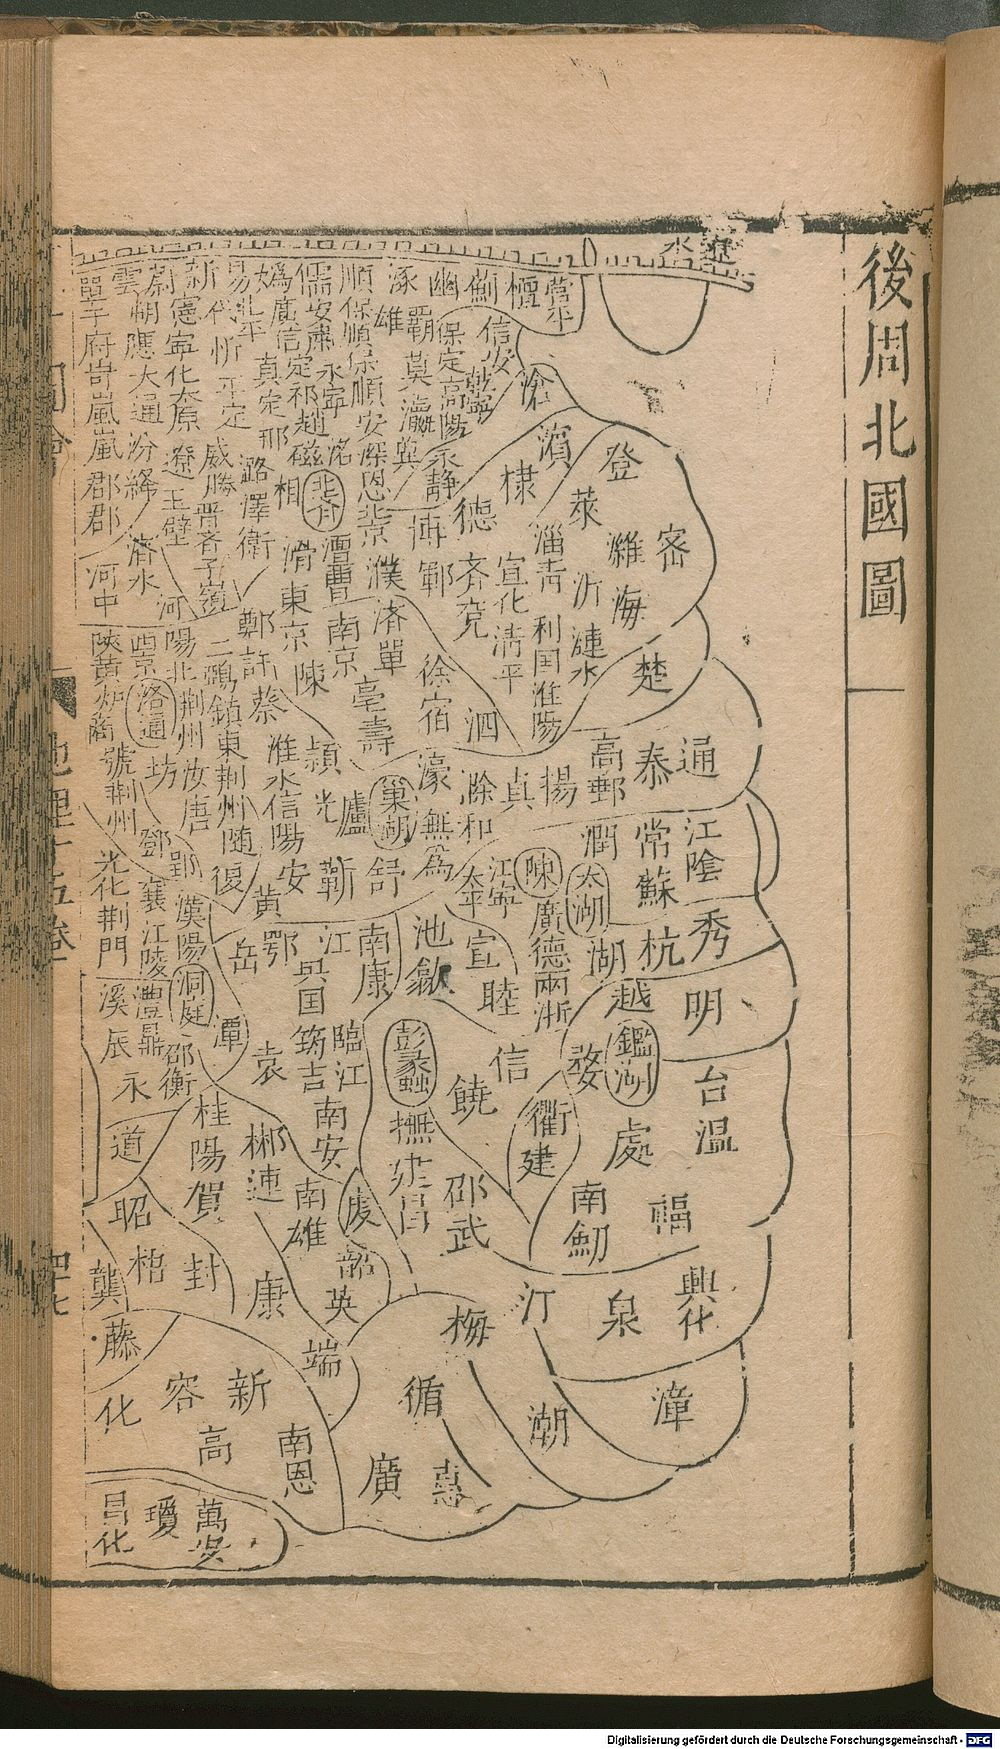 後周北國圖
遼水
營平
檀
薊
幽
涿
順保順保順安深恩北京
儒安肅永寧洺
媯廣信定祁趙磁
易北平
真定邢
相
新代忻平定
威勝晉
潞澤衛
蔚憲寧化太原
遼玉壁
雲朔應大通汾絳
單于府岢嵐嵐郡郡
河中
濟水
河
雄
霸莫瀛冀
保定高陽永靜
信安乾寧
滄
濱
棣
德
登
萊
密
濰
海
淄青
沂
漣水
齊兗
宣化清平
利国淮陽
博
鄆
濮
澶曹
滑
東京
陳
南京
濟單
亳壽
徐宿
泗
楚
鄭許蔡
二鴉鎮東荊州隨
陽北荊州汝唐
洛通
坊
陝
商
虢荊州
鄧
郢
復
潁
光
淮水信陽
安
黃
廬
巢湖
濠
無為
滁和
真
揚
高郵
泰
通
江陰
常
蘇
潤
太湖
陳
江寧
太平
廣德兩浙
湖
杭
秀
舒
蘄
池
歙
宣
睦
越
鑑湖
明
婺
台
溫
處
衢
建
信
饒
彭蠡
撫
建昌
邵武
南劒
福
興化
泉
汀
漳
潮
梅
循
惠
廣
光化荊門
襄江陵
漢陽
洞庭
澧鼎
溪
辰
永
邵衡
潭
岳
鄂
江
南康
興国
筠吉
臨江
袁
南安
南雄
虔
韶
英
郴連
桂陽
賀
道
昭
梧
封
康
端
龔
藤
化
容
新
高
南恩
昌化
瓊
萬安
地理十五卷
四十七
Digitalisierung gefördert durch die Deutsche Forschungsgemeinschaft - DFG